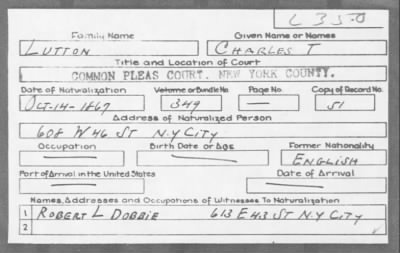 L 350
Family Name Given Name or Names
LUTTON CHARLES T
Title and Location of Court
COMMON PLEAS COURT, NEW YORK COUNTY.
Date of Naturalization Volume or Bundle No. Page No. Copy of Record No.
OCT-14-1867 349 — 51
Address of Naturalized Person
608 W 46 ST N.Y CITY
Occupation Birth Date or Age Former Nationality
— — ENGLISH
Port of Arrival in the United States Date of Arrival
— —
Names, Addresses and Occupations of Witnesses To Naturalization
1 ROBERT L DOBBIE 613 E 43 ST N.Y CITY
2